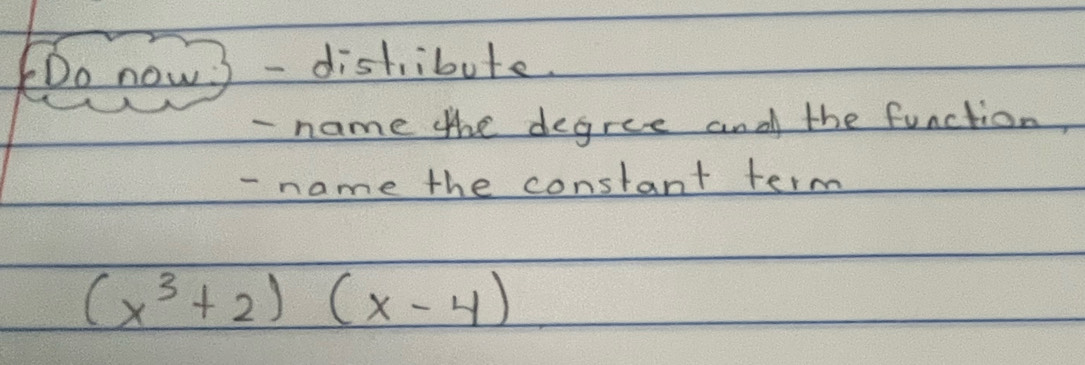 Do now: - distribute.
- name the degree and the function.
- name the constant term
(x³+2) (x-4)